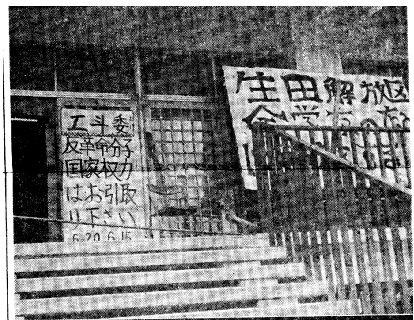 工斗委
反革命分子
国家权力
はお引取
り下さい
6.20 6.15
生田解放区